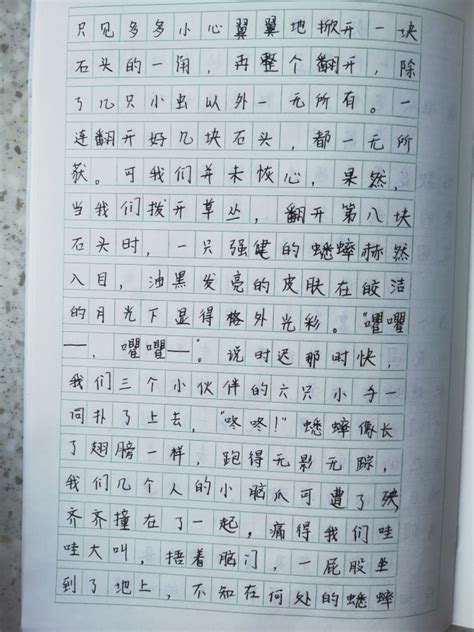 只见多多小心翼翼地掀开一块
石头的一角，再整个翻开，除
了几只小虫以外一无所有。一
连翻开好几块石头，都一无所
获。可我们并未恢心，果然，
当我们拨开草丛，翻开第八块
石头时，一只强健的蟋蟀赫然
入目，油黑发亮的皮肤在皎洁
的月光下显得格外光彩。“嚁嚁
——，嚁嚁——”。说时迟那时快，
我们三个小伙伴的六只小手一
同扑了上去，“咚咚！”蟋蟀像长
了翅膀一样，跑得无影无踪，
我们几个人的小脑爪可遭了殃
齐齐撞在了一起，痛得我们哇
哇大叫，捂着脑门，一屁股坐
到了地上，不知在何处的蟋蟀